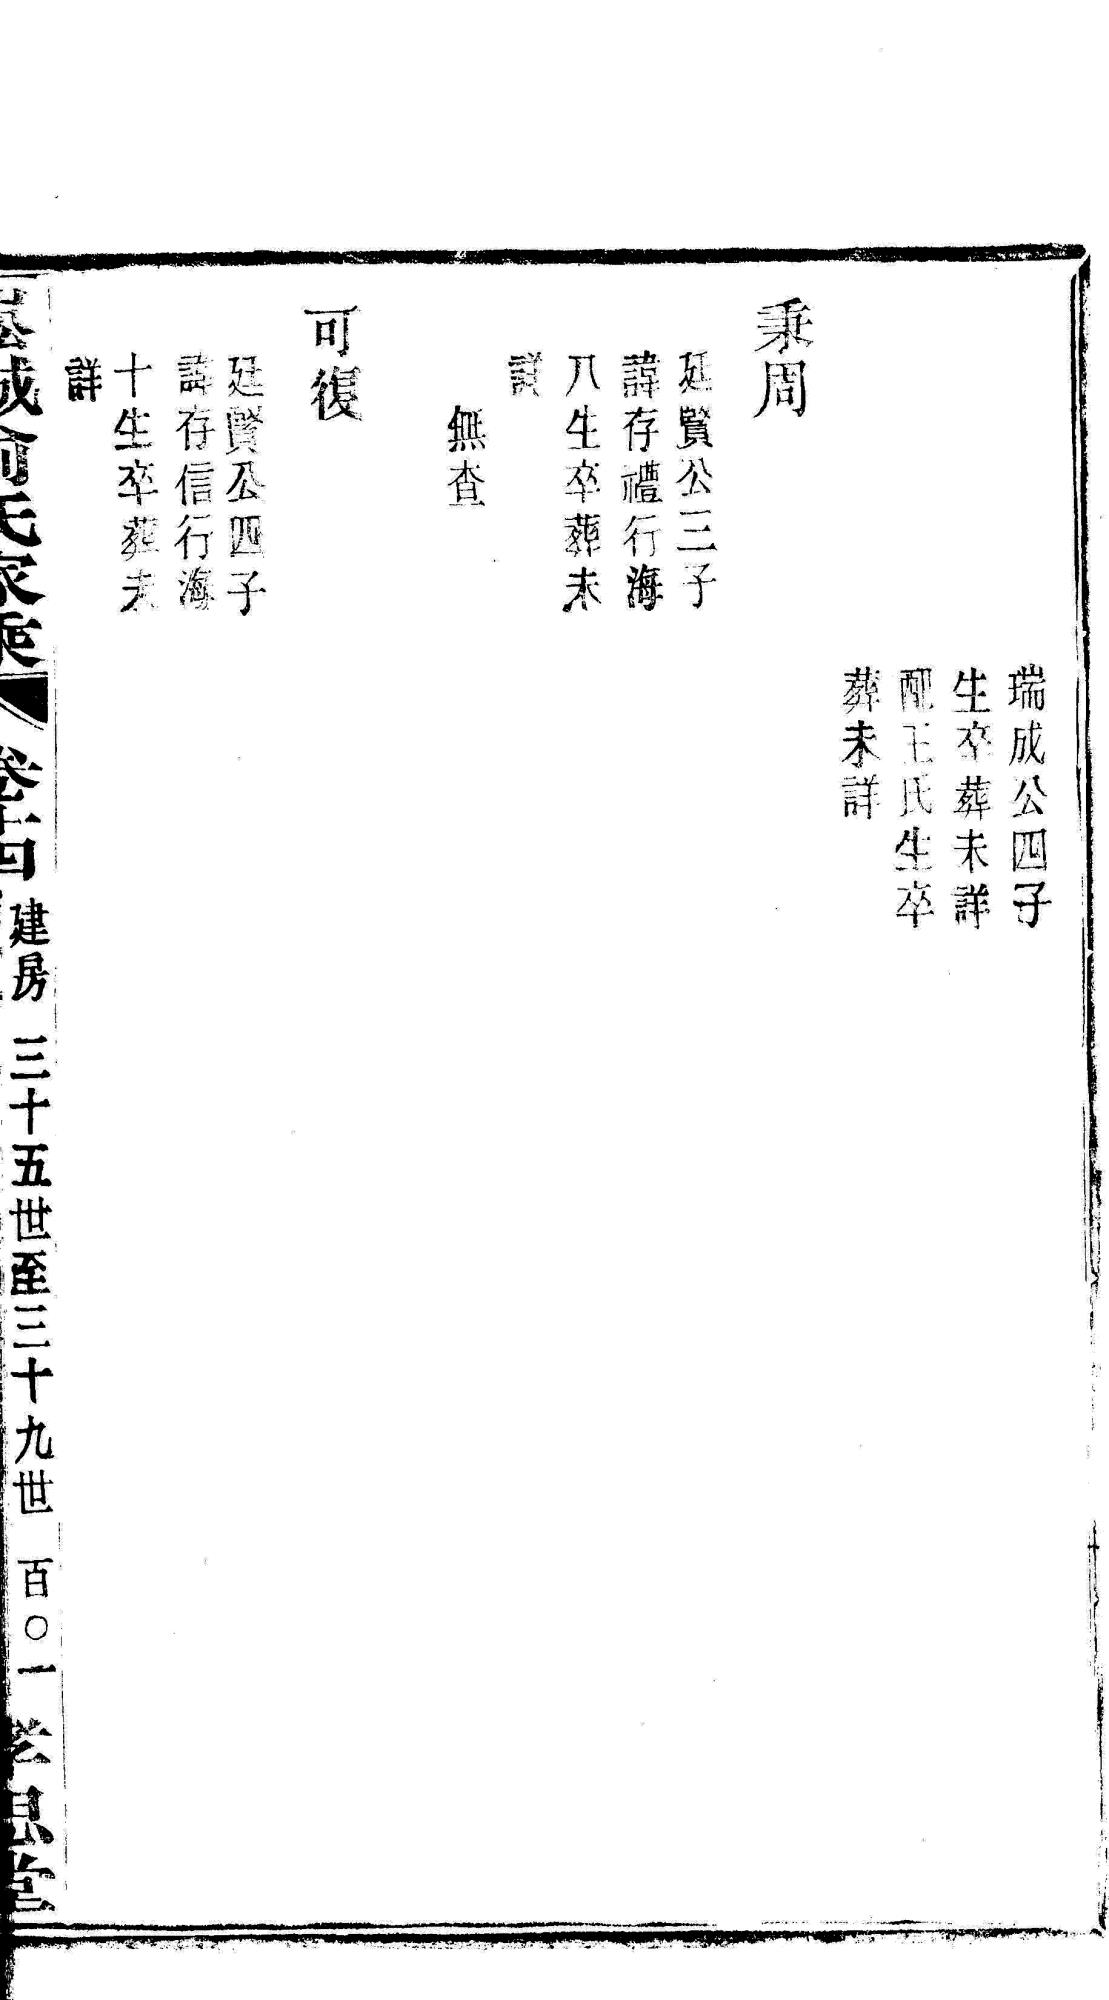 瑞成公四子
生卒葬未詳
配王氏生卒
葬未詳
秉周
廷賢公三子
諱存禮行海
八生卒葬未
詳
無查
可復
廷賢公四子
諱存信行海
十生卒葬未
詳
城俞氏家乘 卷十四 建房 三十五世至三十九世 百〇一 孝思堂